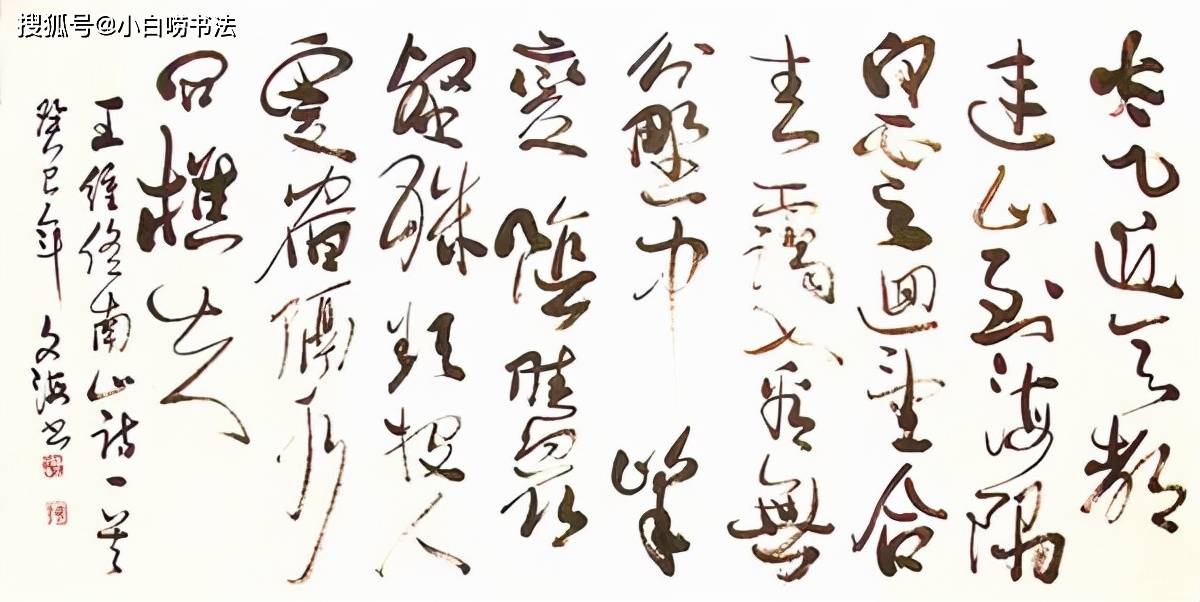 搜狐号@小白唠书法
太乙近天都
連山到海隅
白云迴望合
青靄入看無
分野中峰
變陰晴眾
壑殊欲投人
處宿隔水
问樵夫
王維终南山诗一首
癸巳年 文海书